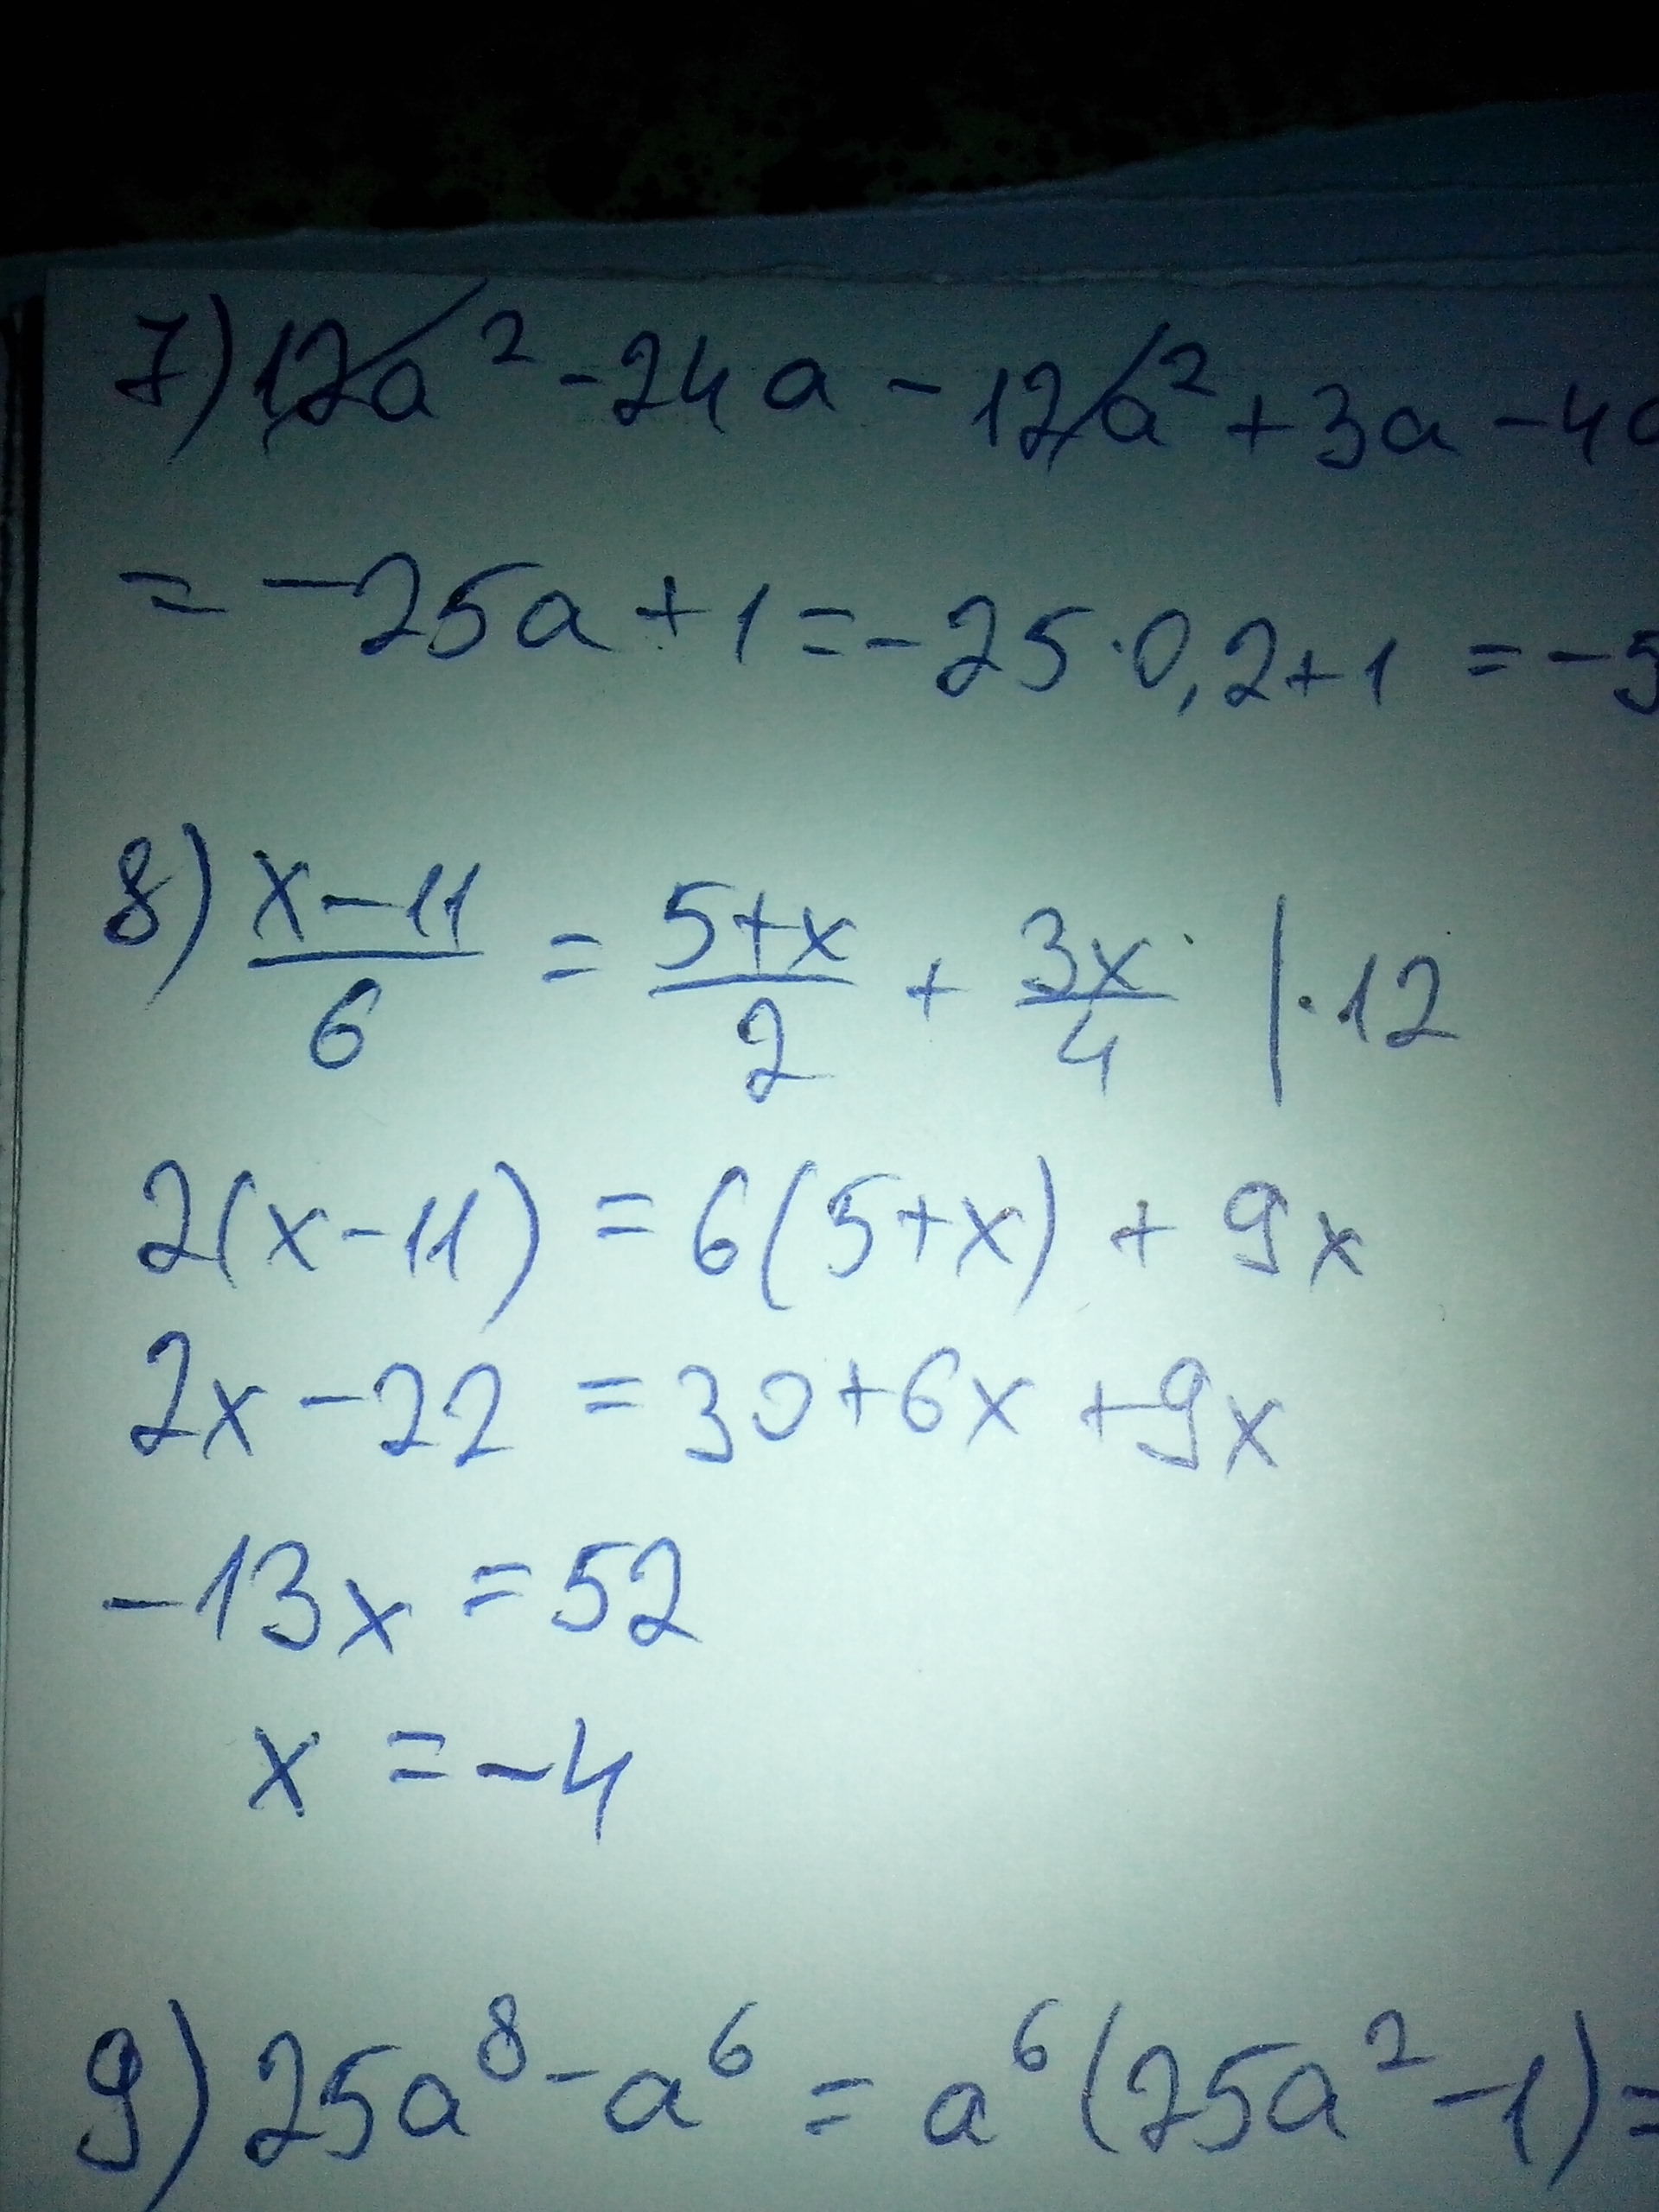 7) 12a² - 24a - 12a² + 3a - 4a
= -25a + 1 = -25·0,2+1 = -5
8) (x-11)/6 = (5+x)/2 + 3x/4 |·12
2(x-11) = 6(5+x) + 9x
2x - 22 = 30+6x + 9x
-13x = 52
x = -4
9) 25a⁸ - a⁶ = a⁶(25a² - 1) =